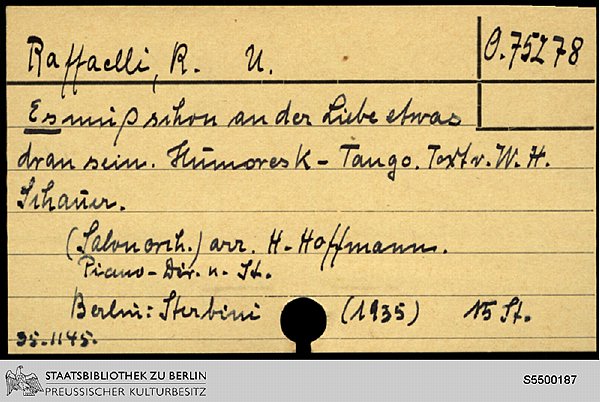 Raffaelli, R. U.
O.75278
Es muß schon an der Liebe etwas
dran sein. Humoresk-Tango. Text v. W. H.
Schauer.
(Salonorch.) arr. H. Hoffmann.
Piano-Dir. u. St.
Berlin: Sterbini (1935) 15 St.
35.1145.
STAATSBIBLIOTHEK ZU BERLIN
PREUSSISCHER KULTURBESITZ
S5500187